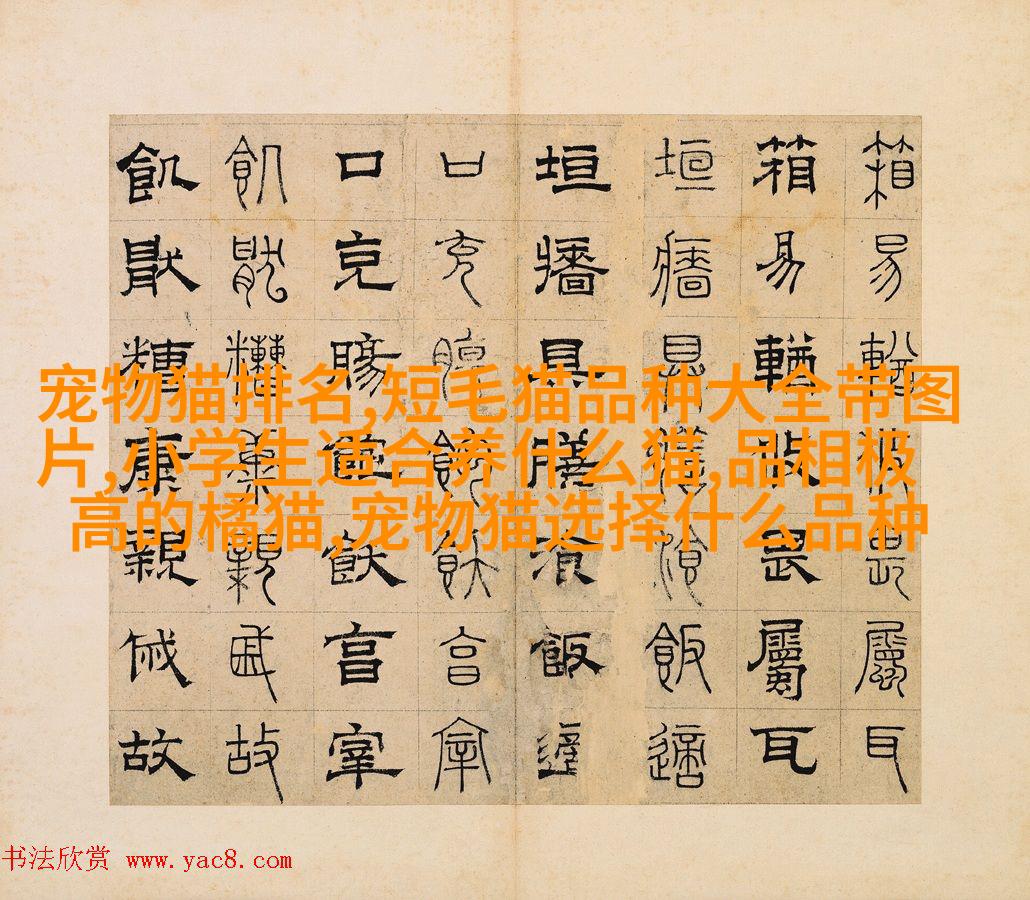 宠物猫排名,短毛猫品种大全带图
片,小学生适合养什么猫,品相极
高的橘猫,宠物猫选择什么品种
箱易輶攸畏屬耳
箱易輶攸畏屬耳
垣牆具膳湌飯適
垣牆具膳湌飯適
口充腸飽飫亯宰
口充腸飽飫亯宰
飢猒糟康親戚故
飢猒糟康親戚故
书法欣赏 www.yac8.com